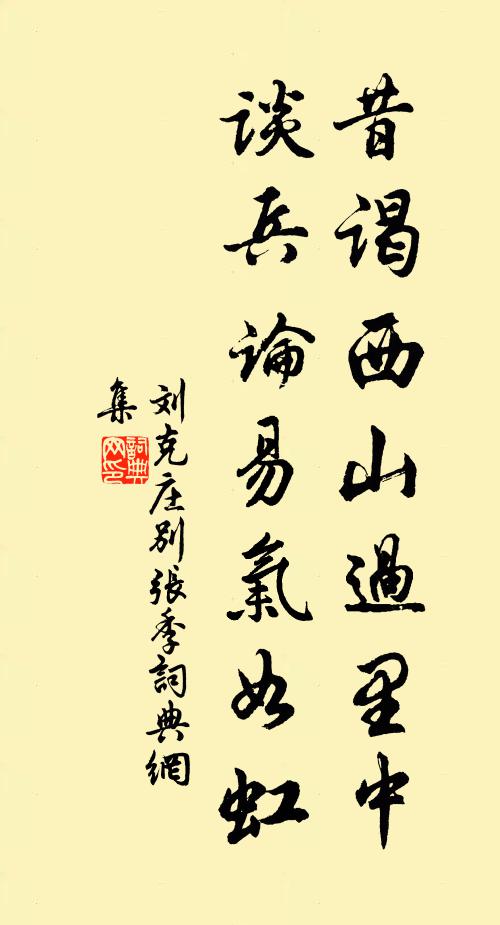 昔谒西山過里中
谈兵論易氣如虹
刘克庄別張季詞典網
集
詞典
网印